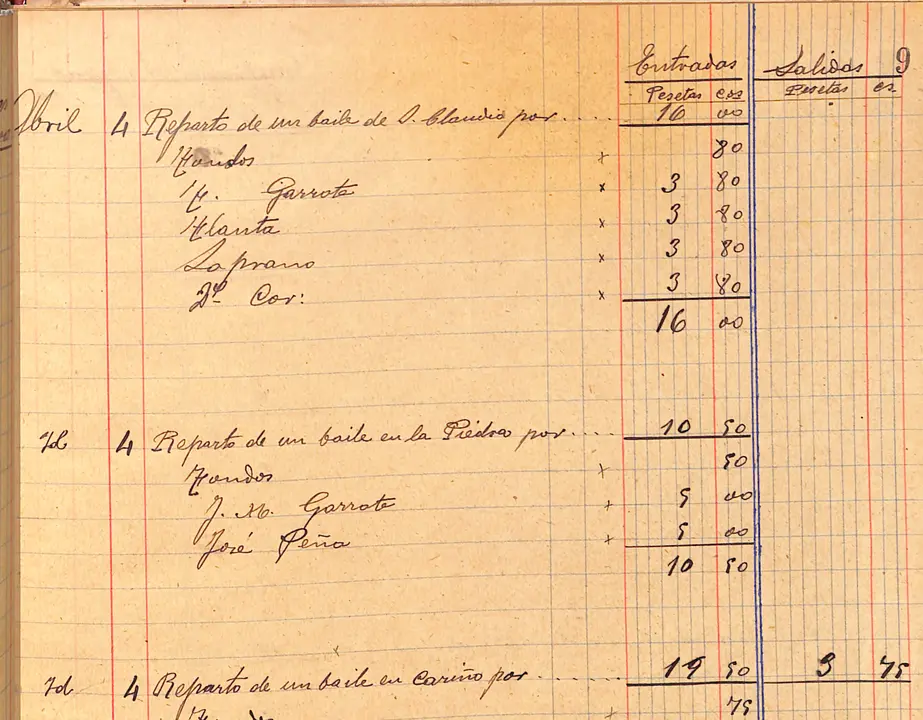 Entradas Salidas 9
Pesetas cts Pesetas cs
Abril 4 Reparto de un baile de S. Claudio por.... 16 00
Fondos x 80
F. Garrote x 3 80
Flauta x 3 80
Soprano x 3 80
2º Cor: x 3 80
16 00
Id 4 Reparto de un baile en la Piedra por.... 10 50
Fondos x 50
J. M. Garrote x 5 00
José Peña x 5 00
10 50
Id 4 Reparto de un baile en Cariño por........ 19 50 3 75
Fondos x 75